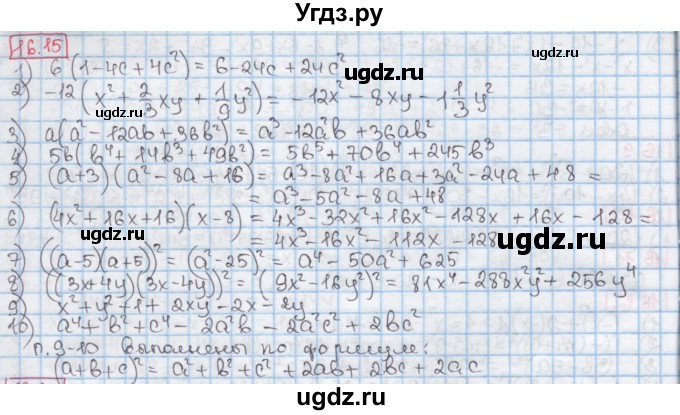 Угдз.ру
16.15
1) 6(1-4c+4c²) = 6-24c+24c²
2) -12(x²+2/3xy+1/9y²) = -12x²-8xy-1 1/3y²
3) a(a²-12ab+36b²) = a³-12a²b+36ab²
4) 5b(b⁴+14b³+49b²) = 5b⁵+70b⁴+245b³
5) (a+3)(a²-8a+16) = a³-8a²+16a+3a²-24a+48 =
= a³-5a²-8a+48
6) (4x²+16x+16)(x-8) = 4x³-32x²+16x²-128x+16x-128 =
= 4x³-16x²-112x-128
7) ((a-5)(a+5))² = (a²-25)² = a⁴-50a²+625
8) ((3x+4y)(3x-4y))² = (9x²-16y²)² = 81x⁴-288x²y²+256y⁴
9) x²+y²+1+2xy-2x-2y
10) a⁴+b²+c⁴-2a²b-2a²c²+2bc²
п.9-10 Выполнены по формуле:
(a+b+c)² = a²+b²+c²+2ab+2bc+2ac
угдз.ру
угдз.ру
угдз.ру
угдз.ру
угдз.ру